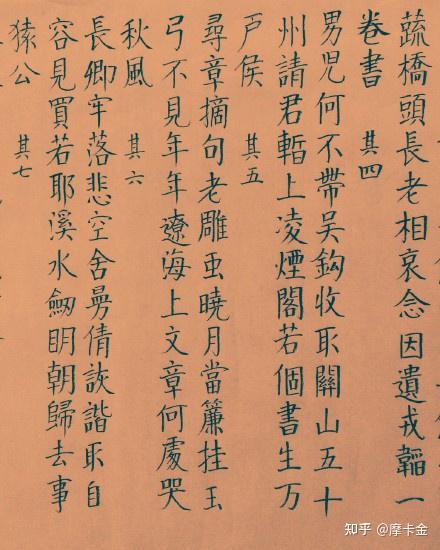 蔬橋頭長老相哀念因遺戎韜一
卷書 其四
男児何不帶吳鉤收取關山五十
州請君暫上凌煙閣若個書生万
戸侯 其五
尋章摘句老雕虫曉月當簾挂玉
弓不見年年遼海上文章何處哭
秋風 其六
長卿牢落悲空舍曼倩詼諧取自
容見買若耶溪水劒明朝歸去事
猿公 其七
知乎 @摩卡金